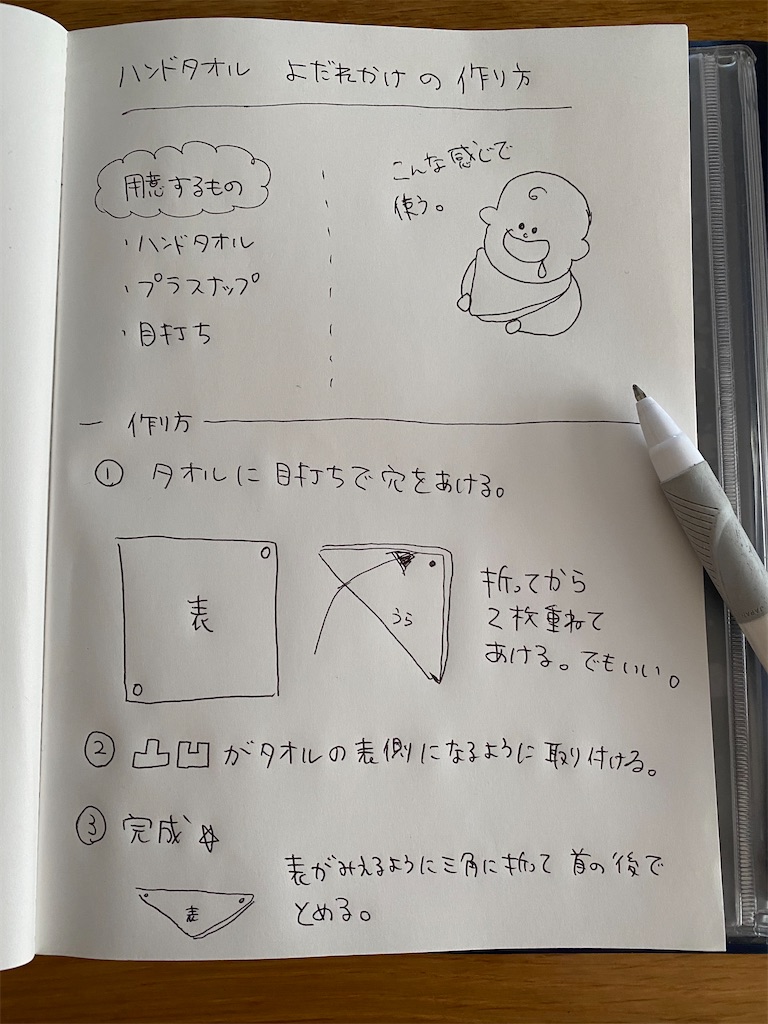 ハンドタオル よだれかけの作り方
用意するもの
・ハンドタオル
・プラスナップ
・目打ち
こんな感じで
使う。
作り方
① タオルに目打ちで穴をあける。
表
うら
折ってから
2枚重ねて
あける。でもいい。
② 凸凹がタオルの表側になるように取り付ける。
③ 完成☆
表がみえるように三角に折って首の後で
とめる。
表